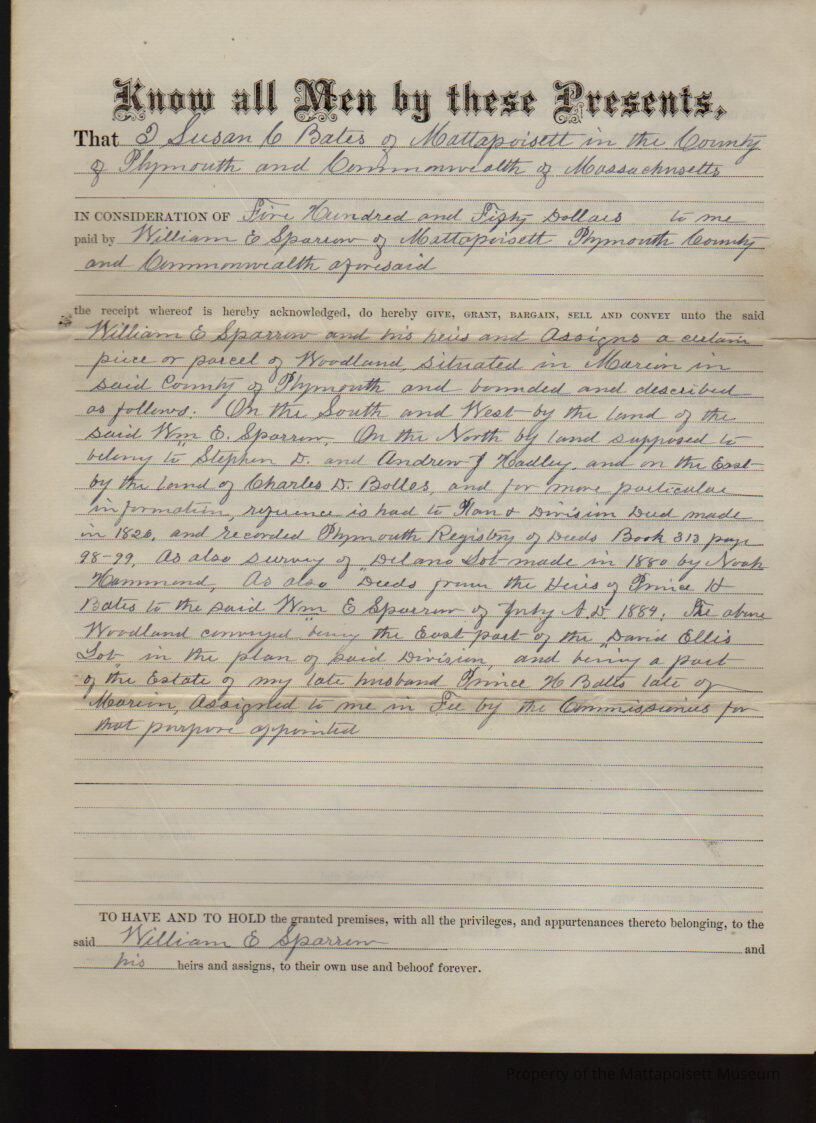 Know all Men by these Presents,
That I Susan C Bates of Mattapoisett in the County
of Plymouth and Commonwealth of Massachusetts
IN CONSIDERATION OF Five Hundred and Fifty Dollars to me
paid by William E Sparrow of Mattapoisett Plymouth County
and Commonwealth aforesaid
the receipt whereof is hereby acknowledged, do hereby GIVE, GRANT, BARGAIN, SELL AND CONVEY unto the said
William E Sparrow and his heirs and Assigns a certain
piece or parcel of Woodland, situated in Marion in
said County of Plymouth and bounded and described
as follows. On the South and West by the land of the
said Wm E. Sparrow, On the North by land supposed to
belong to Stephen D. and Andrew J Hadley, and on the East
by the land of Charles D. Bolles, and for more particular
information, reference is had to Plan & Division Deed made
in 1826, and recorded Plymouth Registry of Deeds Book 313 page
98-99, As also survey of "Delano Lot made in 1880 by Noah
Hammond, As also Deeds from the Heirs of Prince H
Bates to the said Wm E Sparrow of July A.D. 1884. The above
Woodland conveyed being the East part of the "David Ellis
Lot" in the plan of said Division, and being a part
of the Estate of my late husband Prince H Bates late of
Marion, Assigned to me in Fee by the Commissioners for
that purpose appointed
TO HAVE AND TO HOLD the granted premises, with all the privileges, and appurtenances thereto belonging, to the
said William E Sparrow and
his heirs and assigns, to their own use and behoof forever.
Property of the Mattapoisett Museum